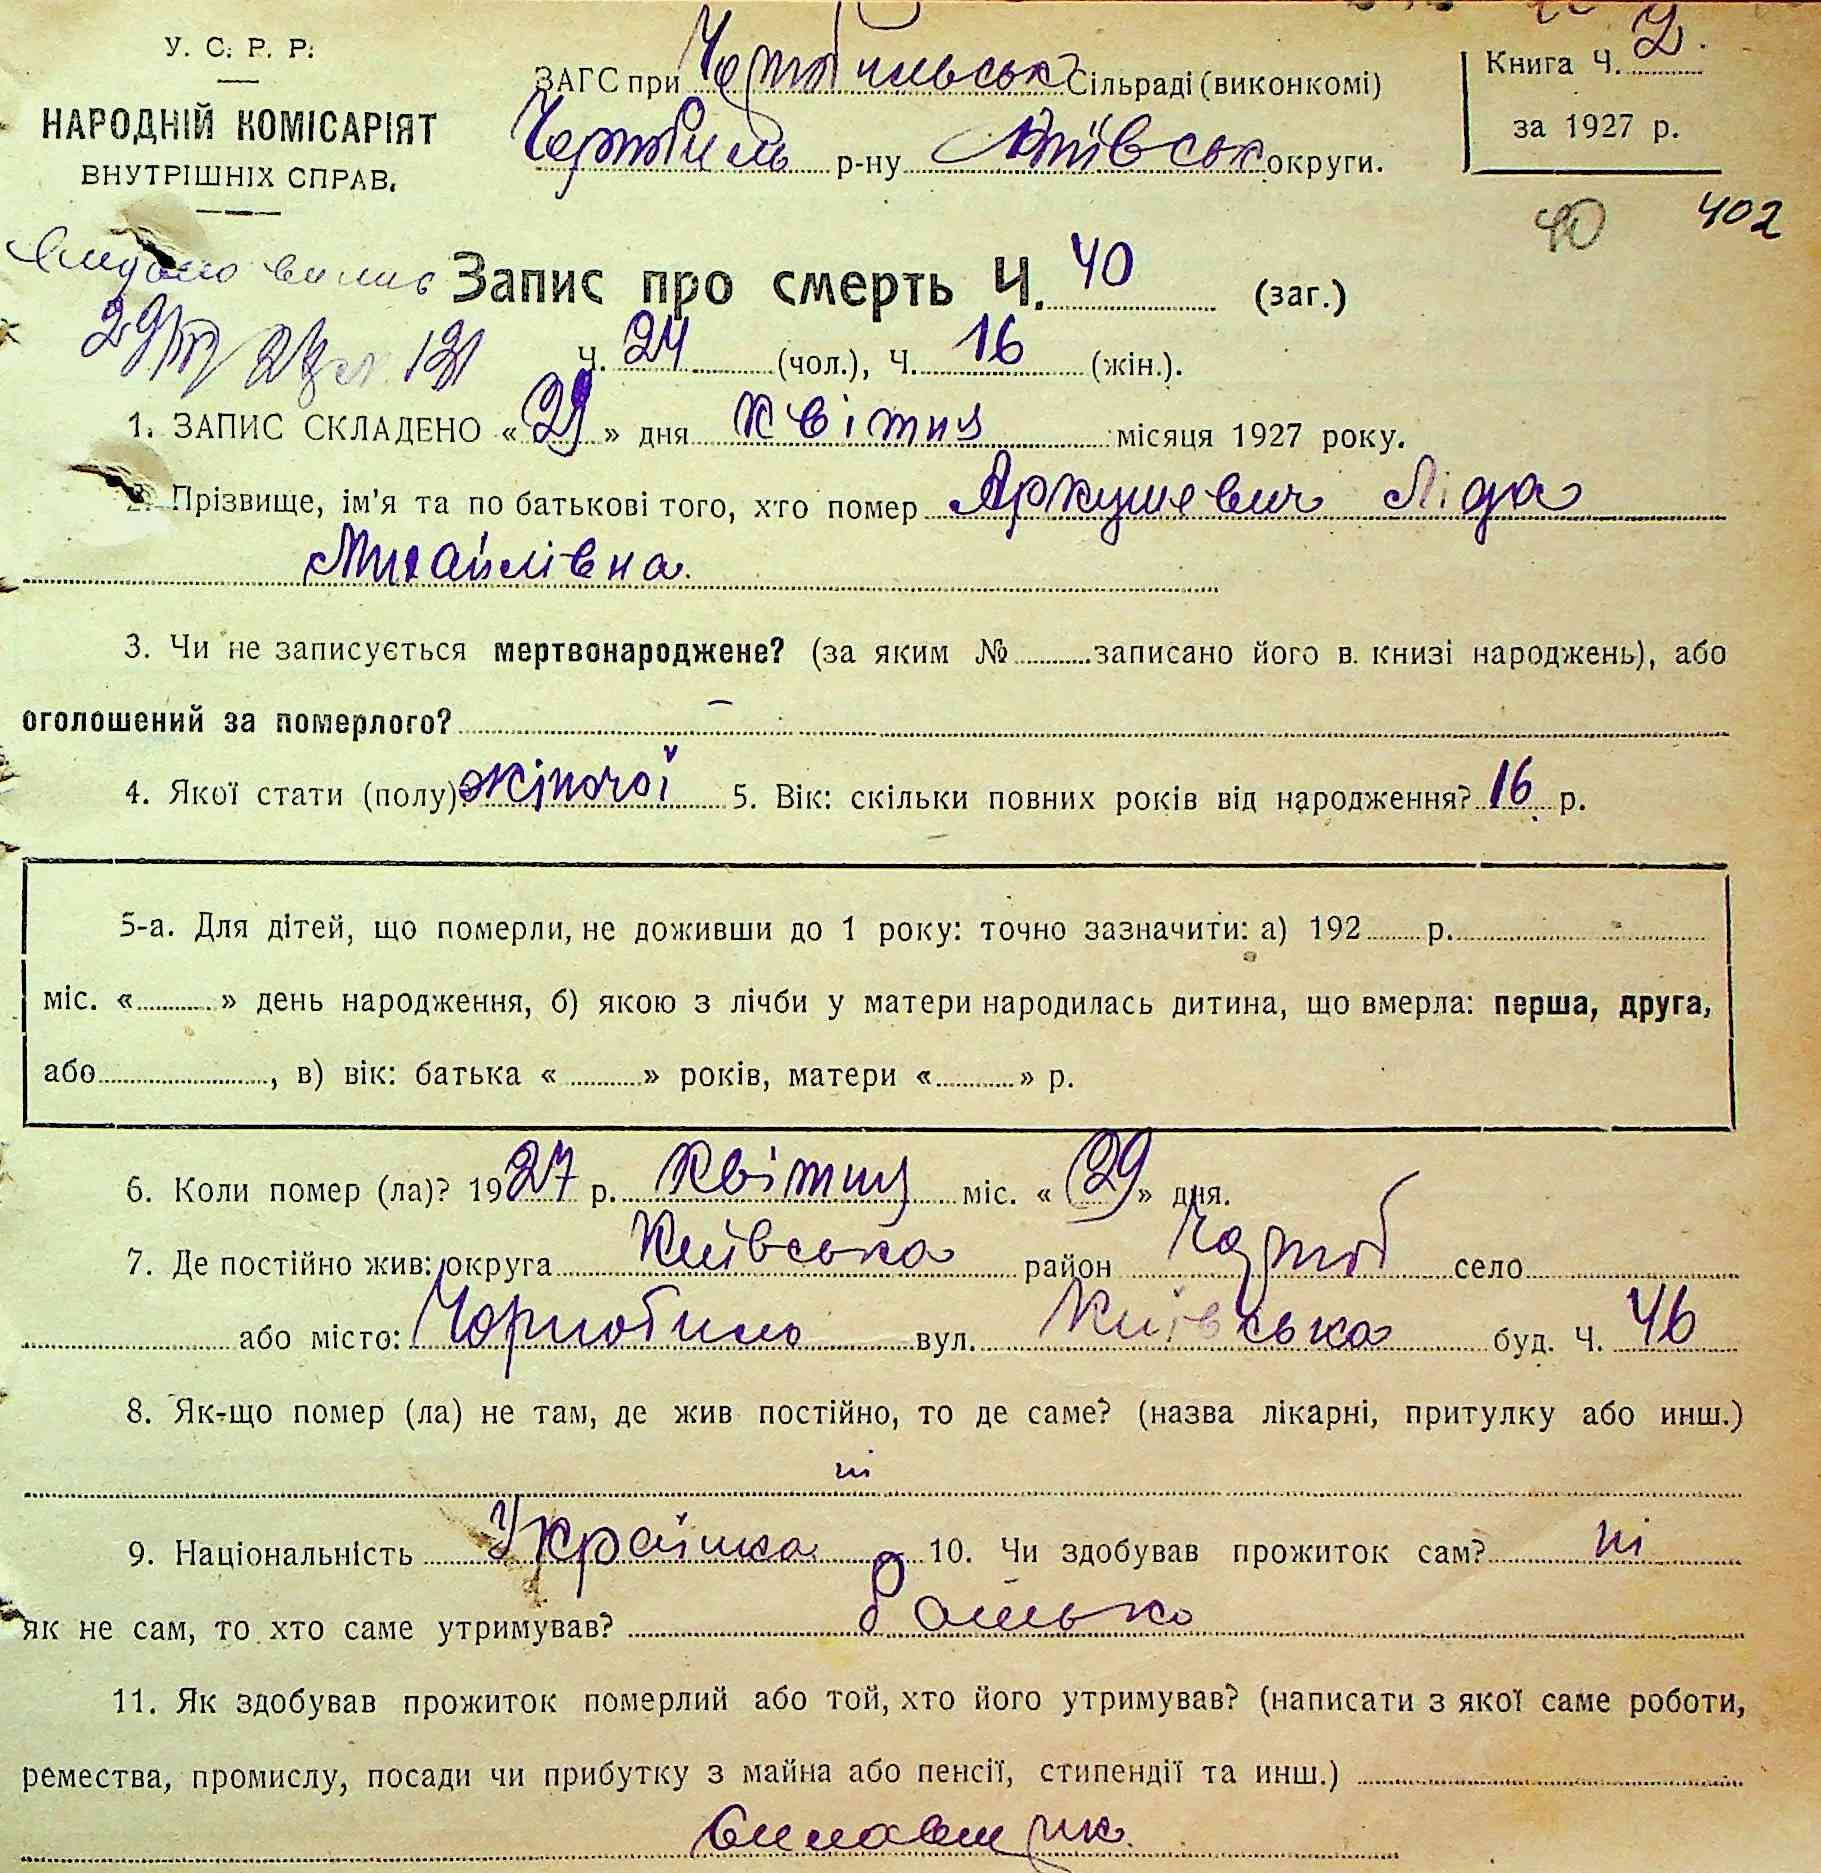 У. С. Р. Р.
НАРОДНІЙ КОМІСАРІЯТ
ВНУТРІШНІХ СПРАВ.
ЗАГС при Чорнобильськ Сільраді (виконкомі)
Чорнобиль р-ну Київськ округи.
Книга Ч. 2.
за 1927 р.
40 402
Запис про смерть Ч. 40 (заг.)
Ч. 24 (чол.), Ч. 16 (жін.).
1. ЗАПИС СКЛАДЕНО «29» дня квітня місяця 1927 року.
2. Прізвище, ім'я та по батькові того, хто помер Аркушевич Ліда
Михайлівна.
3. Чи не записується мертвонароджене? (за яким № записано його в книзі народжень), або
оголошений за померлого? —
4. Якої стати (полу) жіночої 5. Вік: скільки повних років від народження? 16 р.
5-а. Для дітей, що померли, не доживши до 1 року: точно зазначити: а) 192 р.
міс. « » день народження, б) якою з лічби у матери народилась дитина, що вмерла: перша, друга,
або , в) вік: батька « » років, матери « » р.
6. Коли помер (ла)? 1927 р. квітня міс. «29» дня.
7. Де постійно жив: округа Київська район Чорноб село
або місто: Чорнобиль вул. Київська буд. Ч. 46
8. Як-що помер (ла) не там, де жив постійно, то де саме? (назва лікарні, притулку або инш.)
ні
9. Національність Українка 10. Чи здобував прожиток сам? ні
як не сам, то хто саме утримував? батько
11. Як здобував прожиток померлий або той, хто його утримував? (написати з якої саме роботи,
ремества, промислу, посади чи прибутку з майна або пенсії, стипендії та инш.)